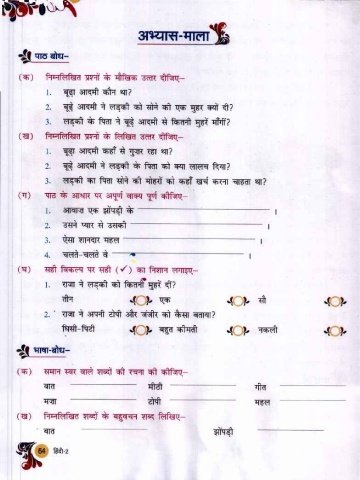 अभ्यास-माला
पाठ बोध–
(क) निम्नलिखित प्रश्नों के मौखिक उत्तर दीजिए–
1. बूढ़ा आदमी कौन था?
2. बूढ़े आदमी ने लड़की को सोने की एक मुहर क्यों दी?
3. लड़की के पिता ने बूढ़े आदमी से कितनी मुहरें माँगीं?
(ख) निम्नलिखित प्रश्नों के लिखित उत्तर दीजिए–
1. बूढ़ा आदमी कहाँ से गुजर रहा था?
2. बूढ़े आदमी ने लड़की के पिता को क्या लालच दिया?
3. लड़की का पिता सोने की मोहरों को कहाँ खर्च करना चाहता था?
(ग) पाठ के आधार पर अपूर्ण वाक्य पूर्ण कीजिए–
1. आवाज एक झोंपड़ी के ।
2. उसने प्यार से उसकी ।
3. ऐसा शानदार महल ।
4. चलते-चलते वे ।
(घ) सही विकल्प पर सही (✓) का निशान लगाइए–
1. राजा ने लड़की को कितनी मुहरें दीं?
तीन एक सौ
2. राजा ने अपनी टोपी और जंजीर को कैसा बताया?
घिसी-पिटी बहुत कीमती नकली
भाषा-बोध–
(क) समान स्वर वाले शब्दों की रचना की कीजिए–
बात मीठी गीत
मजा टोपी महल
(ख) निम्नलिखित शब्दों के बहुवचन शब्द लिखिए–
बात झोंपड़ी
64 हिंदी-2